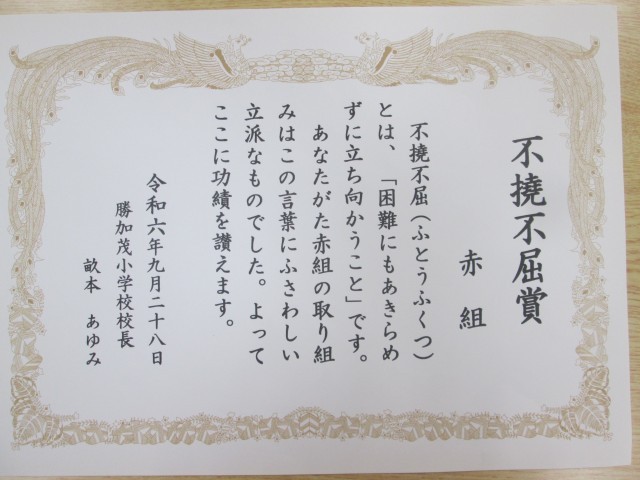 不撓不屈賞
赤組
不撓不屈(ふとうふくつ)
とは、「困難にもあきらめ
ずに立ち向かうこと」です。
あなたがた赤組の取り組
みはこの言葉にふさわしい
立派なものでした。よって
ここに功績を讃えます。
令和六年九月二十八日
勝加茂小学校校長
畝本 あゆみ